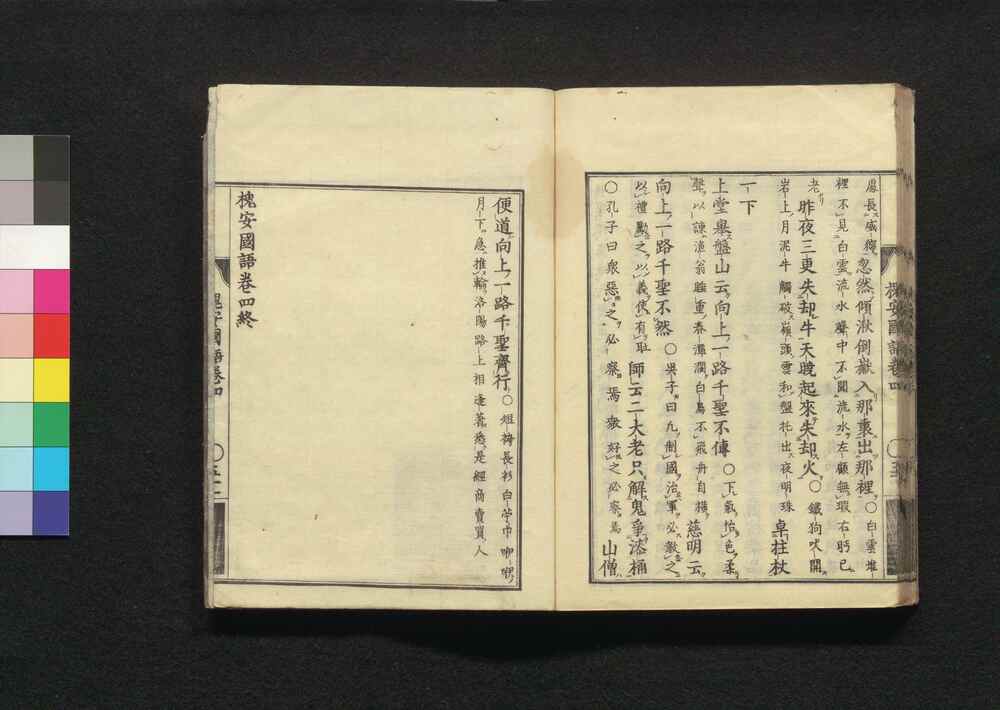 忽然傾湫倒嶽入那裏出那裡○白雲堆
裡不見白雲流水聲中不聞流水左顧無瑕右眄已
老昨夜三更失却牛天曉起來失却火○鐵狗吠開
岩上月泥牛觸破嶺頭雲和盤托出夜明珠卓拄杖
一下
上堂舉盤山云向上一路千聖不傳○下氣怡色柔
聲以諫漁翁睡重春潭濶白鳥不飛舟自横慈明云
向上一路千聖不然○吳子曰凡制國治軍必敎之
以禮勵之以義使有恥師云二大老只解鬼爭漆桶
○孔子曰衆惡之必察焉衆好之必察焉山僧
槐安國語卷四
便道向上一路千聖齊行○短袴長衫白苧巾咿咿
月下急推輪洛陽路上相逢著悉是經商賣買人
槐安國語卷四終
槐安國語卷四